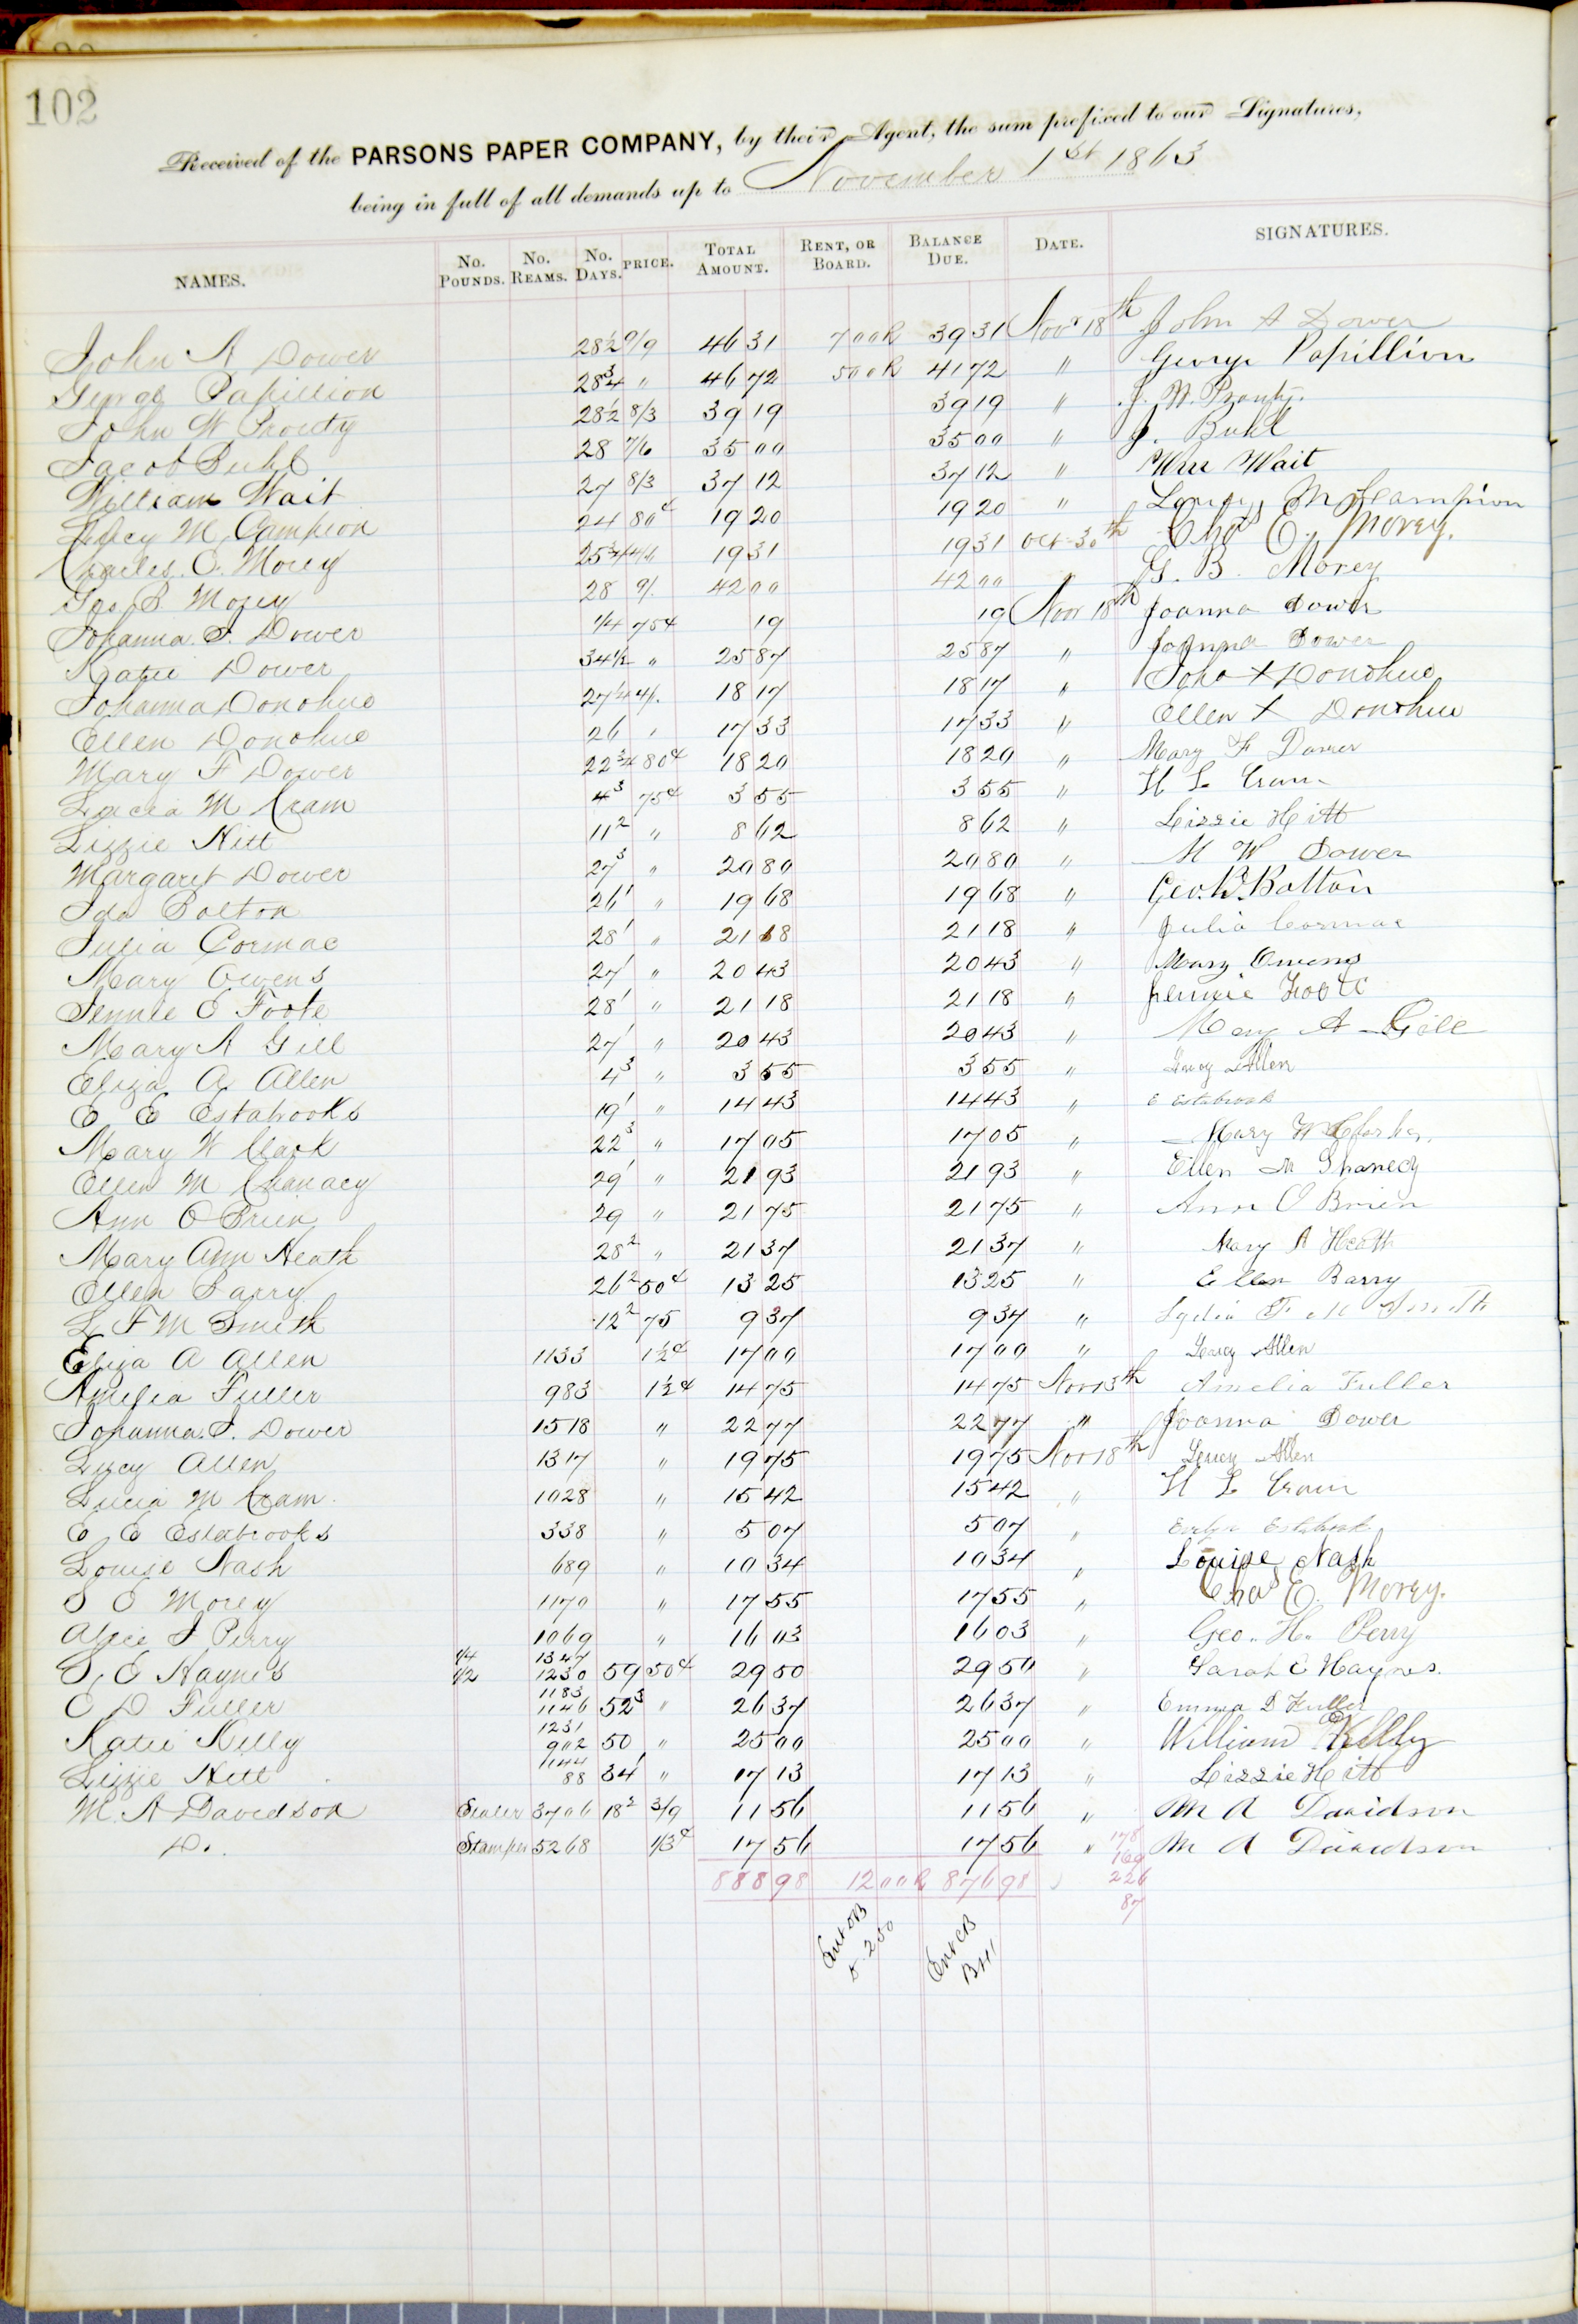 102
Received of the PARSONS PAPER COMPANY, by their Agent, the sum prefixed to our Signatures,
being in full of all demands up to November 1st 1863
NAMES. No. POUNDS. No. REAMS. No. DAYS. PRICE. TOTAL AMOUNT. RENT, OR BOARD. BALANCE DUE. DATE. SIGNATURES.
John A Dower 28½ 9/9 46 31 7 00 R 39 31 Novr 18th John A Dower
George Papillion 28¾ " 46 72 5 00 R 41 72 " George Papillion
John W Prouty 28½ 8/3 39 19 39 19 " J. W. Prouty
Jacob Buhl 28 7/6 35 00 35 00 " J. Buhl
William Wait 27 8/3 37 12 37 12 " Wm Wait
Lucy M Campion 24 80¢ 19 20 19 20 " Lucy M Campion
Charles E. Morey 25¾ 4/6 19 31 19 31 Oct 30th Chas E. Morey.
Geo B Morey 28 9/. 42 00 42 00 " G. B. Morey
Johanna J. Dower ¼ 75¢ 19 19 Nov 18th Joanna Dower
Katie Dower 34½ " 25 87 25 87 " Joanna Dower
Johanna Donohue 27¼ 4/. 18 17 18 17 " Joha X Donohue
Ellen Donohue 26 " 17 33 17 33 " Ellen X Donohue
Mary F Dower 22¾ 80¢ 18 20 18 20 " Mary F Dower
Lucia M Cram 4 3 75¢ 3 55 3 55 " H L Cram
Lizzie Hitt 11 2 " 8 62 8 62 " Lizzie Hitt
Margaret Dower 27 3 " 20 80 20 80 " M W Dower
Ida Bolton 26 1 " 19 68 19 68 " Geo. W. Bolton
Julia Cormac 28 1 " 21 18 21 18 " Julia Cormac
Mary Owens 27 1 " 20 43 20 43 " Mary Owens
Jennie E Foote 28 1 " 21 18 21 18 " Jennie Foote
Mary A Gill 27 1 " 20 43 20 43 " Mary A Gill
Eliza A Allen 4 3 " 3 55 3 55 " Lucy Allen
E E Estabrooks 19 1 " 14 43 14 43 " E Estabrook
Mary W Clark 22 3 " 17 05 17 05 " Mary W Clark
Ellen M Chanacy 29 1 " 21 93 21 93 " Ellen M Shanecy
Ann O Brien 29 " 21 75 21 75 " Ann O Brien
Mary Ann Heath 28 2 " 21 37 21 37 " Mary A Heath
Ellen Barry 26 2 50¢ 13 25 13 25 " Ellen Barry
L F M Smith 12 2 75 9 37 9 37 " Lydia F M Smith
Eliza A Allen 1133 1½¢ 17 00 17 00 " Lucy Allen
Amelia Fuller 983 1½¢ 14 75 14 75 Nov 13th Amelia Fuller
Johanna J. Dower 1518 " 22 77 22 77 " Joanna Dower
Lucy Allen 1317 " 19 75 19 75 Nov 18th Lucy Allen
Lucia M Cram 1028 " 15 42 15 42 " H L Cram
E E Estabrooks 338 " 5 07 5 07 " Estabrook
Louise Nash 689 " 10 34 10 34 " Louise Nash
S E Morey 1170 " 17 55 17 55 " Chas E. Morey.
Alice J Perry 1069 " 16 03 16 03 " Geo. H. Perry
S, E Haynes 1/4 1347 1/2 1230 59 50¢ 29 50 29 50 " Sarah E Haynes.
E D Fuller 1183 1146 52 3 " 26 37 26 37 " Emma D Fuller
Katie Kelly 1231 902 50 " 25 00 25 00 " William Kelly
Lizzie Hitt 1144 88 34 1 " 17 13 17 13 " Lizzie Hitt
M. A Davidson Sealer 3706 18 2 3/9 11 56 11 56 " M A Davidson
Do. Stamper 5268 1/3¢ 17 56 17 56 " M A Davidson
178
160
888 98 12 00 R 876 98 226
87
Ent CB
Ent CB
B41